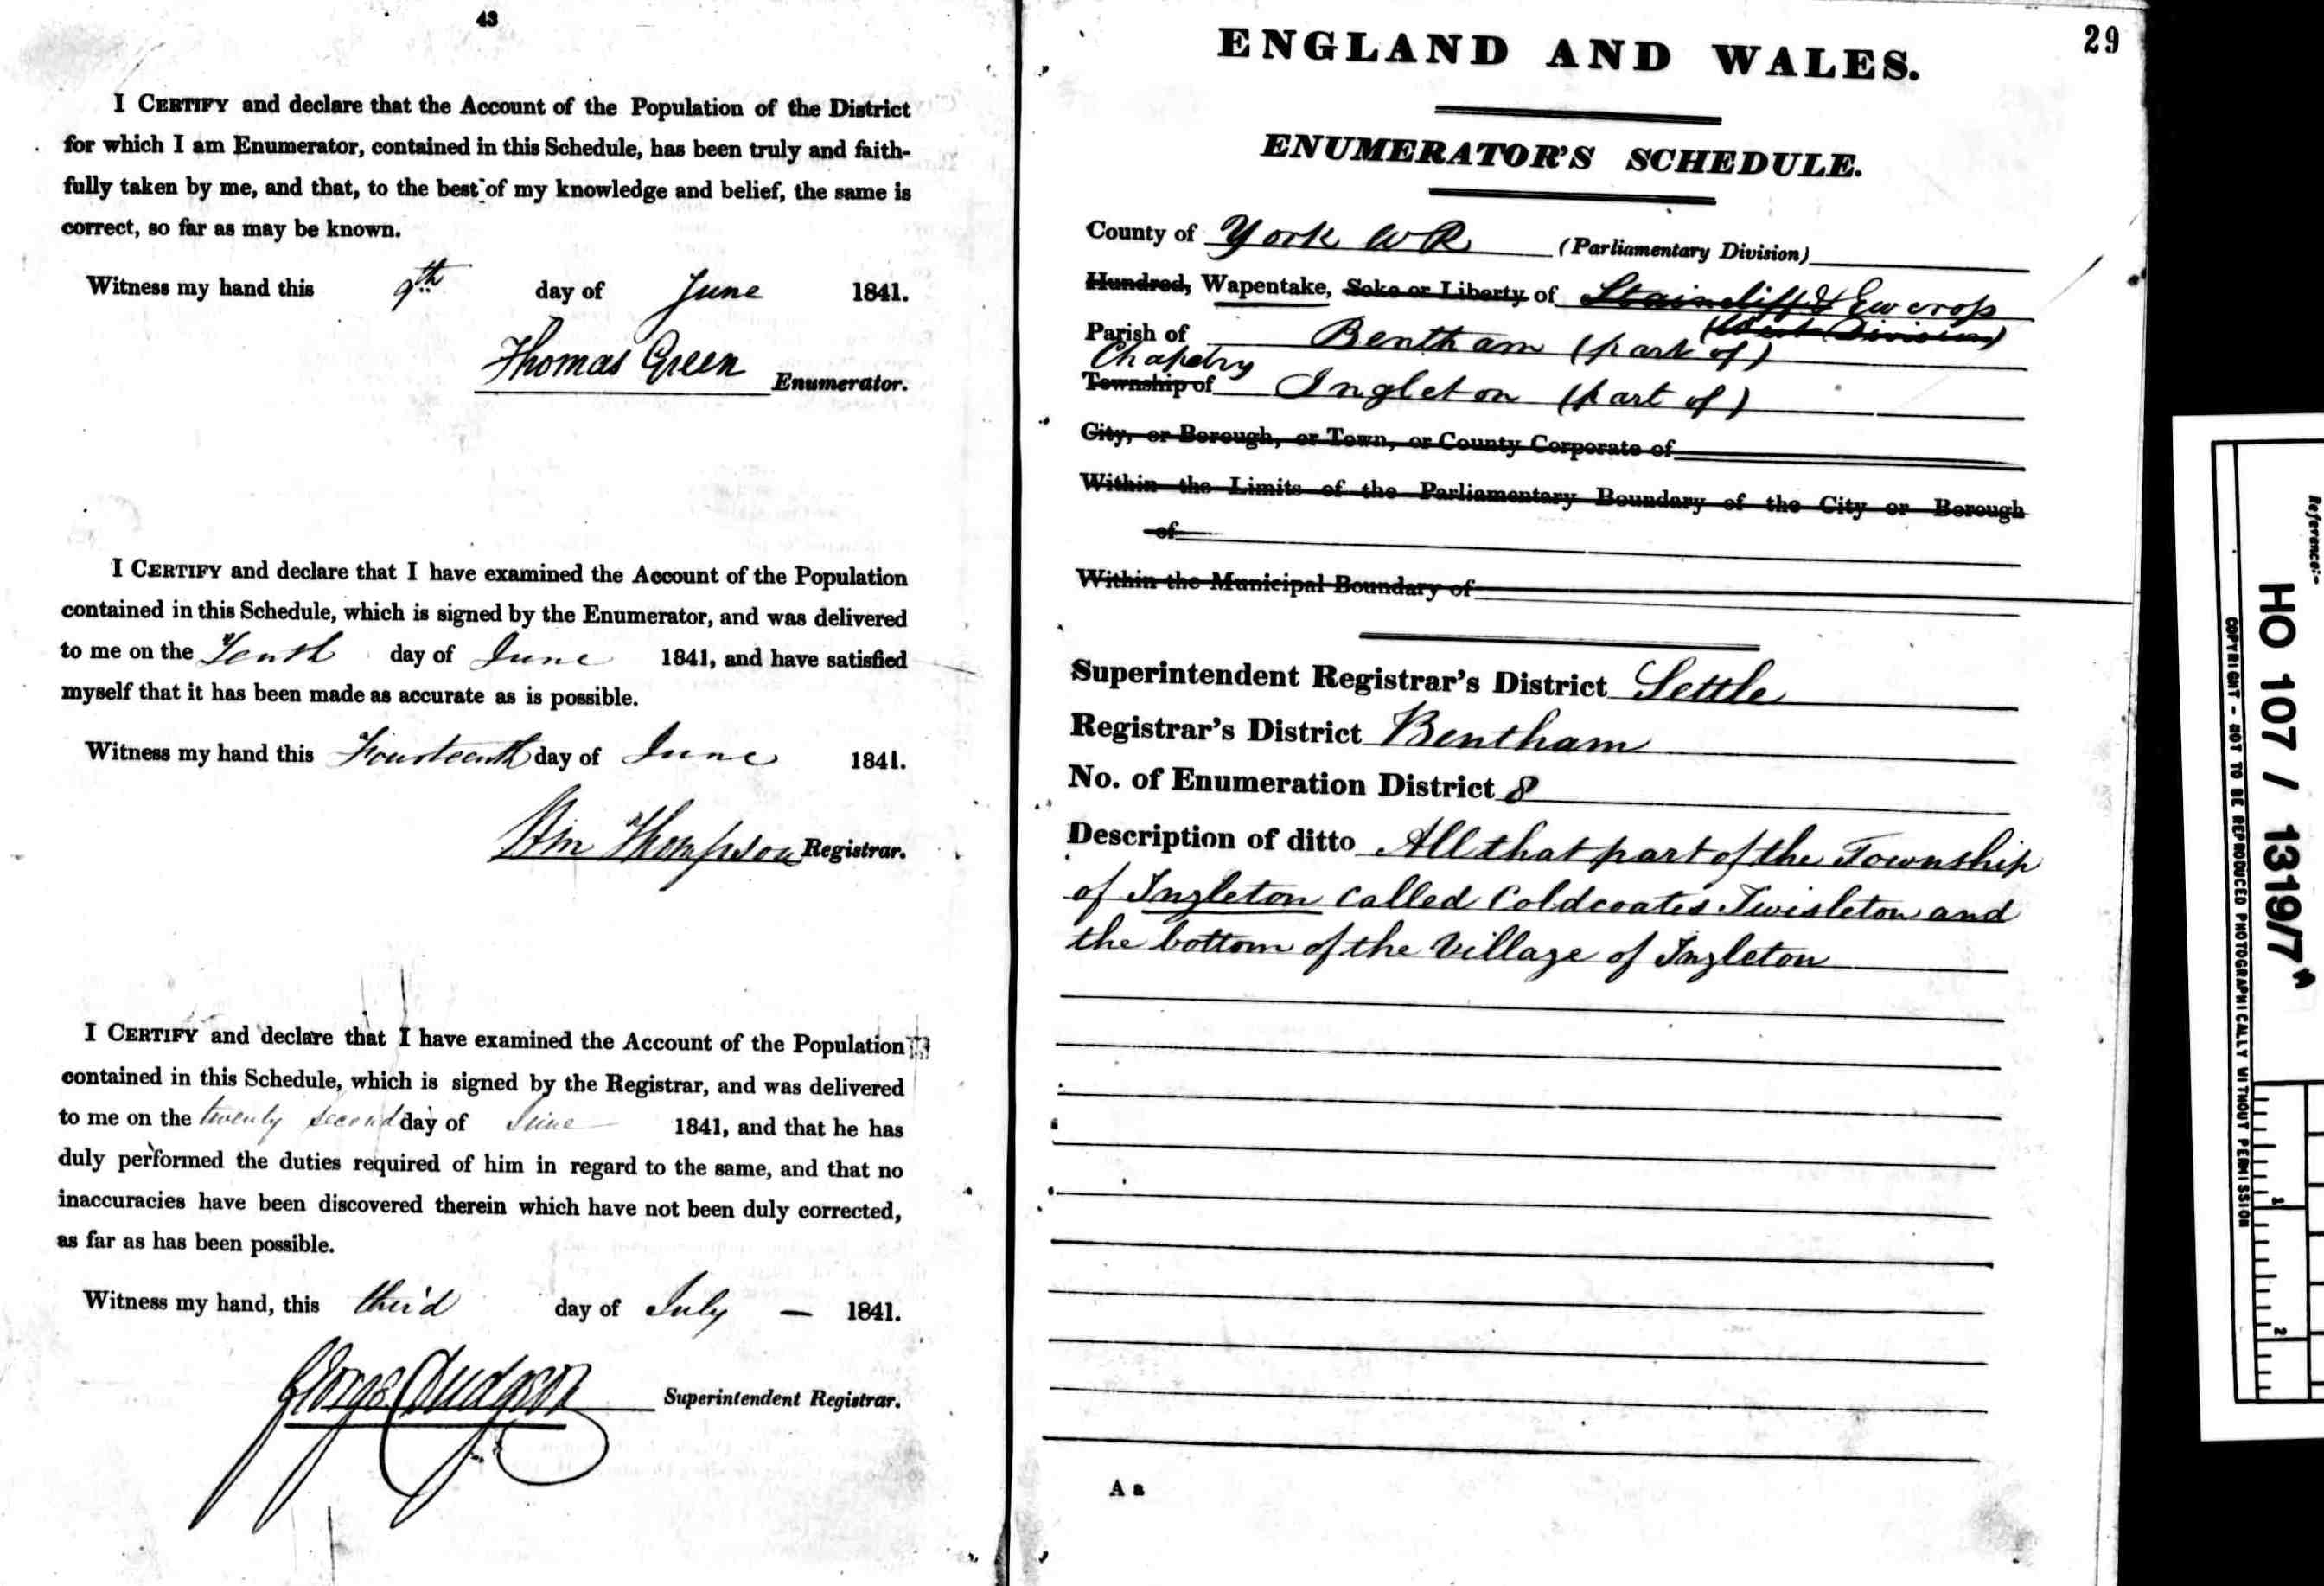 43
I CERTIFY and declare that the Account of the Population of the District
for which I am Enumerator, contained in this Schedule, has been truly and faith-
fully taken by me, and that, to the best of my knowledge and belief, the same is
correct, so far as may be known.
Witness my hand this 9th day of June 1841.
Thomas Green Enumerator.
I CERTIFY and declare that I have examined the Account of the Population
contained in this Schedule, which is signed by the Enumerator, and was delivered
to me on the Tenth day of June 1841, and have satisfied
myself that it has been made as accurate as is possible.
Witness my hand this Fourteenth day of June 1841.
Wm Thompson Registrar.
I CERTIFY and declare that I have examined the Account of the Population
contained in this Schedule, which is signed by the Registrar, and was delivered
to me on the twenty second day of June 1841, and that he has
duly performed the duties required of him in regard to the same, and that no
inaccuracies have been discovered therein which have not been duly corrected,
as far as has been possible.
Witness my hand, this third day of July — 1841.
George Hudgson Superintendent Registrar.
29
ENGLAND AND WALES.
ENUMERATOR'S SCHEDULE.
County of York WR (Parliamentary Division)
Hundred, Wapentake, Soke or Liberty of Staincliff & Ewcross
(West Division)
Parish of Bentham (part of)
Chapelry
Township of Ingleton (part of)
City, or Borough, or Town, or County Corporate of
Within the Limits of the Parliamentary Boundary of the City or Borough
of
Within the Municipal Boundary of
Superintendent Registrar's District Settle
Registrar's District Bentham
No. of Enumeration District 8
Description of ditto All that part of the Township
of Ingleton called Coldcoates Twisleton and
the bottom of the Village of Ingleton
A a
Reference:-
HO 107 / 1319/7
COPYRIGHT - NOT TO BE REPRODUCED PHOTOGRAPHICALLY WITHOUT PERMISSION
1
2